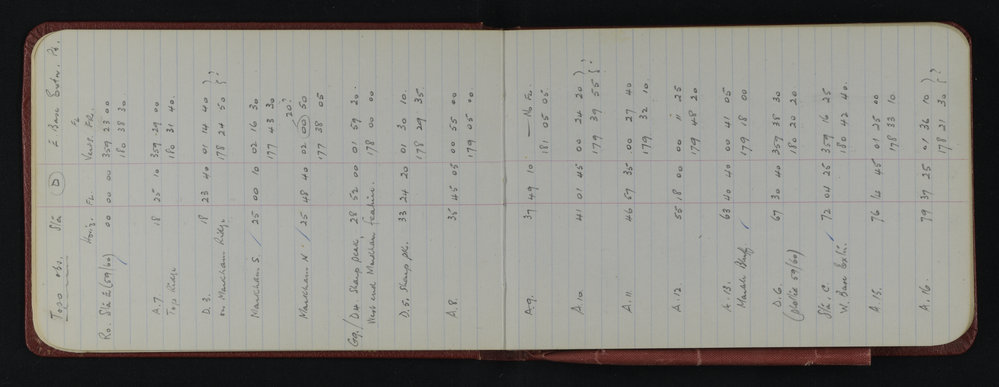 Topo obs. Sta (D) E Base Extn. Pt.
Horiz. FL Vert. FL,
Ro. Sta 2 (59/60) 00 00 00 359 23 00
180 38 30
A.7. 18 25 10 359 29 00
Top Ridge 180 31 40.
D.3. 18 23 40 01 14 40 ) ?
on Markham Ridge 178 24 50 ( ?
Markham S. / 25 00 10 02 16 30
177 43 30
20?
Markham N. / 25 48 40 02 (00) 50
177 38 05
Gq./D4. Sharp peak, 28 52 00 01 59 20.
West end Markham feature. 178 00 00
D.5. Sharp pk. 33 24 20 01 30 10.
178 29 35
A.8. 35 45 05 00 55 00
179 05 00
A.9. 37 49 10. — No FL.
181 05 05
A.10 41 01 45 00 24 20 ) ,
179 39 55 ( ?
A.11. 46 57 35 00 27 40
179 32 10.
A.12 55 18 00 00 11 25
179 48 20
A.13. 63 40 40 00 41 05
Marble Bluff / 179 18 00
D.6. 67 30 40 359 38 30
59/60) 180 20 20
Sta. C. / 72 04 25 359 16 25
W. Base Extn. 180 42 40.
A.15. 76 14 45 01 25 00
178 33 10.
A.16. 79 37 25 01 36 10 ) ,
178 21 30 ( ?